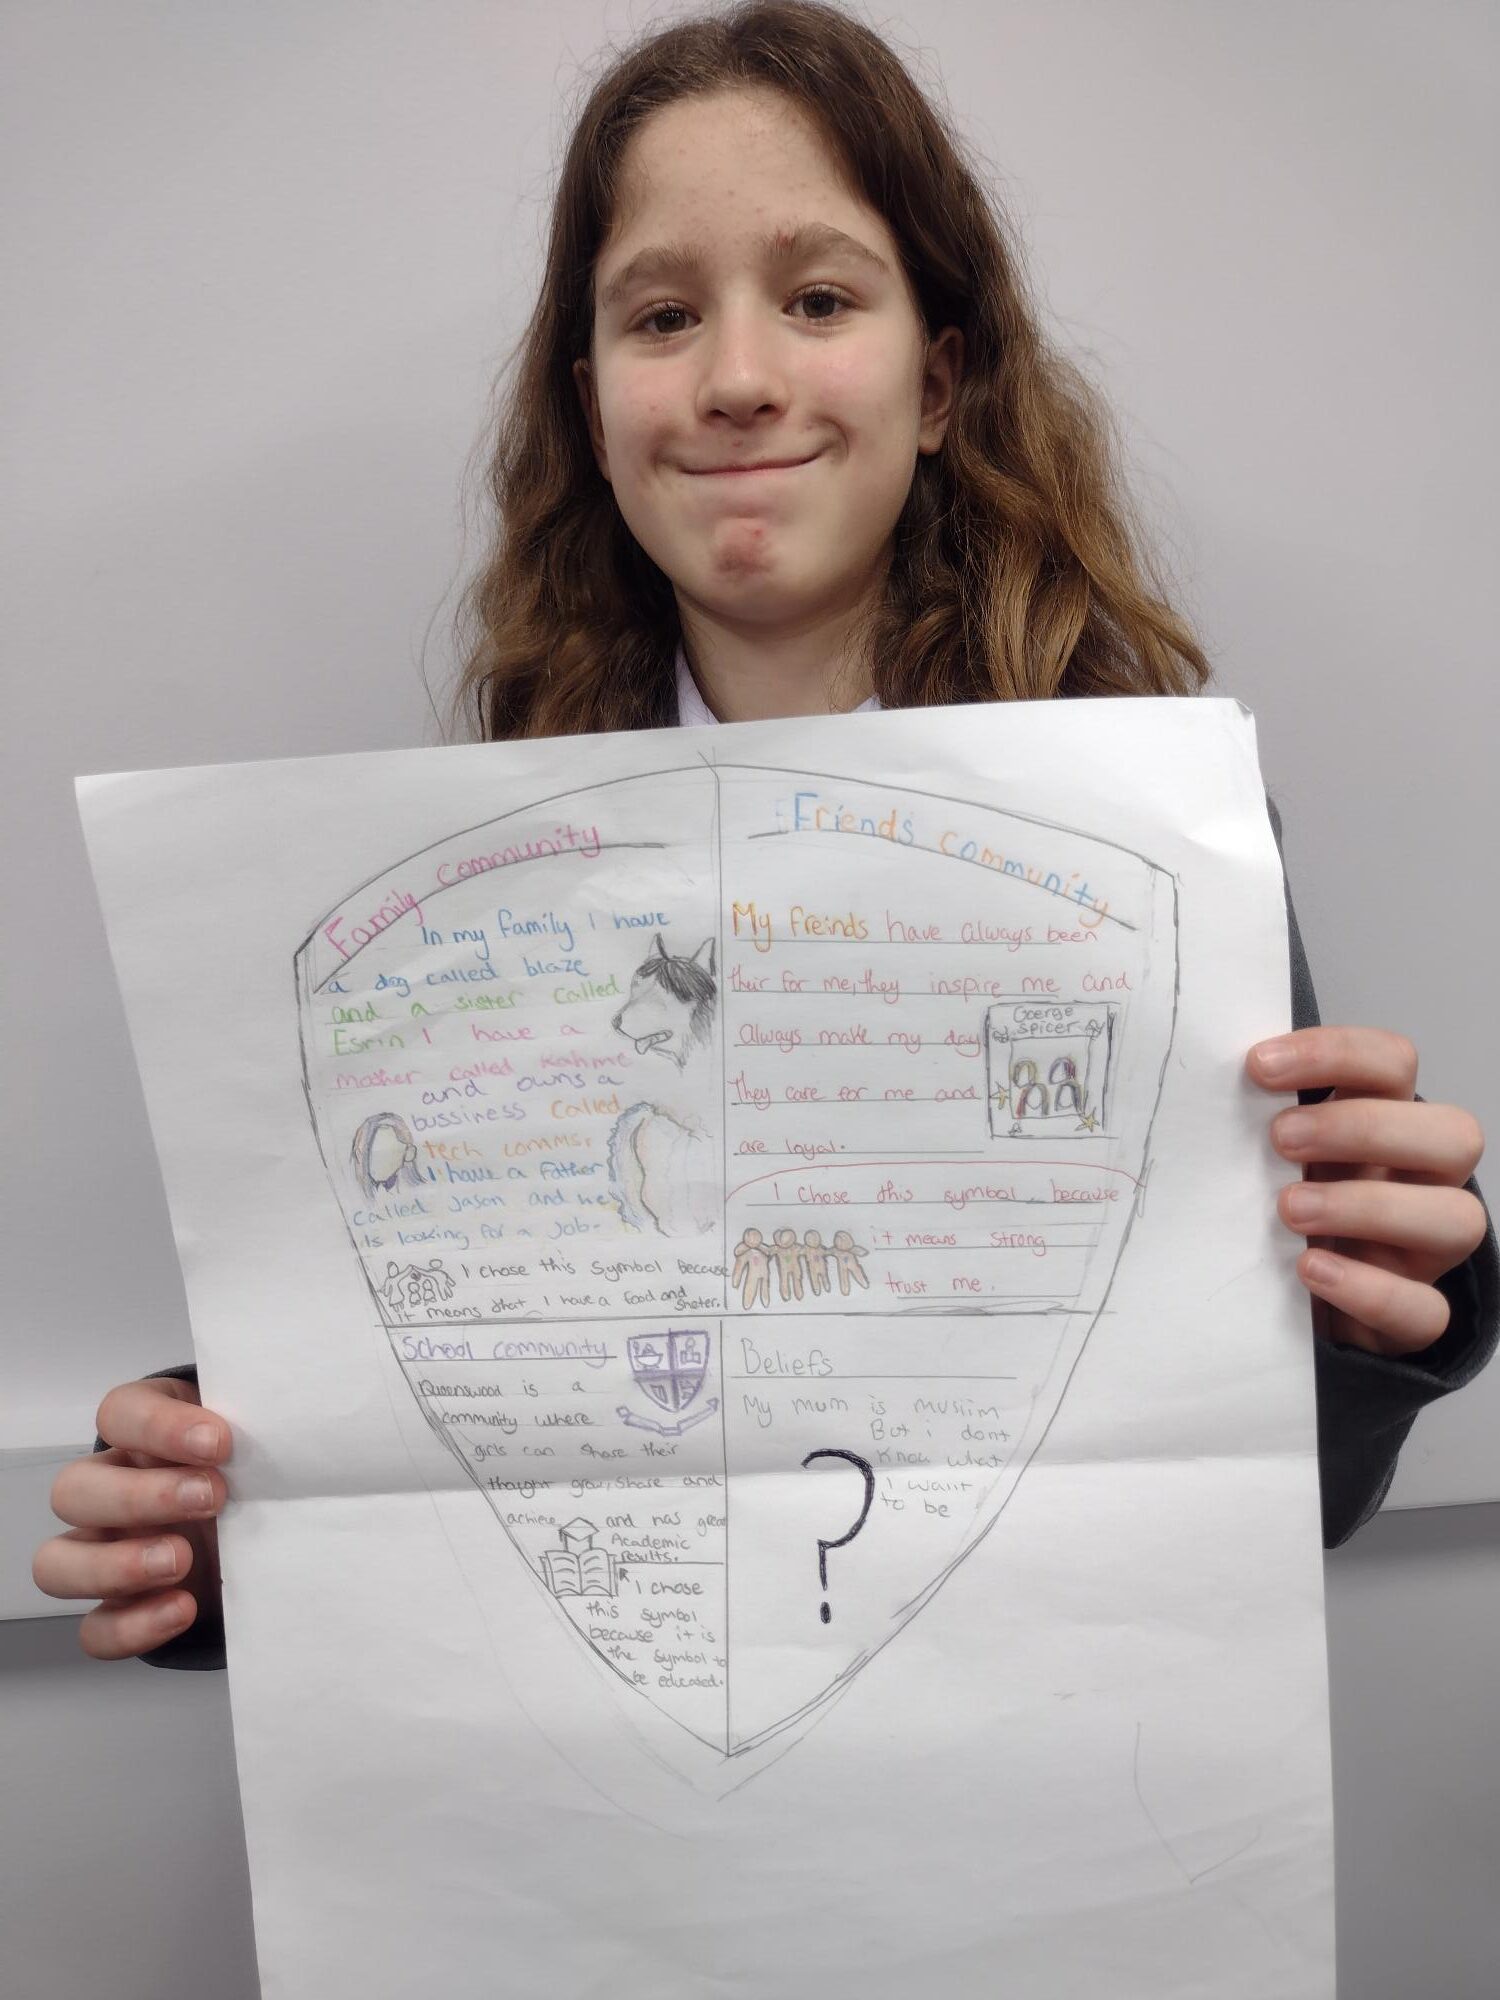 Family community
In my family I have
a dog called blaze
and a sister called
Esrin I have a
mother called Rahme
and owns a
bussiness called
tech comms.
I have a father
called Jason and he
Is looking for a Job.
I chose this symbol because
it means that I have a food and
sheter.
Friends community
My freinds have always been
their for me, they inspire me and
always make my day
They care for me and
are loyal.
Goerge
spicer
I chose this symbol because
it means strong
trust me.
School community
Queenswood is a
community where
girls can share their
thought grow, share and
achieve and has great
Academic
results.
I chose
this symbol
because it is
the symbol to
be educated.
Beliefs
My mum is muslim
But i dont
know what
I want
to be
?